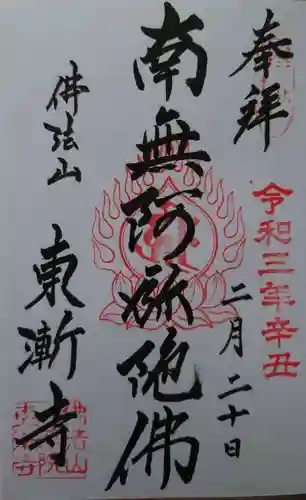 奉拜
令和三年辛丑
二月二十日
南無阿弥陀佛
佛法山
東漸寺